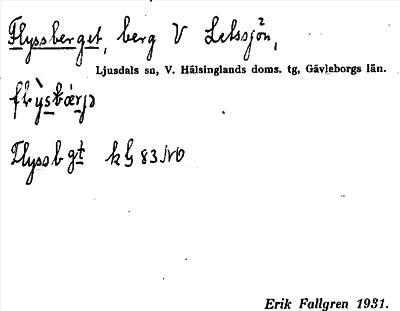 Flyssberget, berg V Letssjön,
Ljusdals sn, V. Hälsinglands doms. tg, Gävleborgs län.
Flyssbgt kG 83 NO
Erik Fallgren 1931.